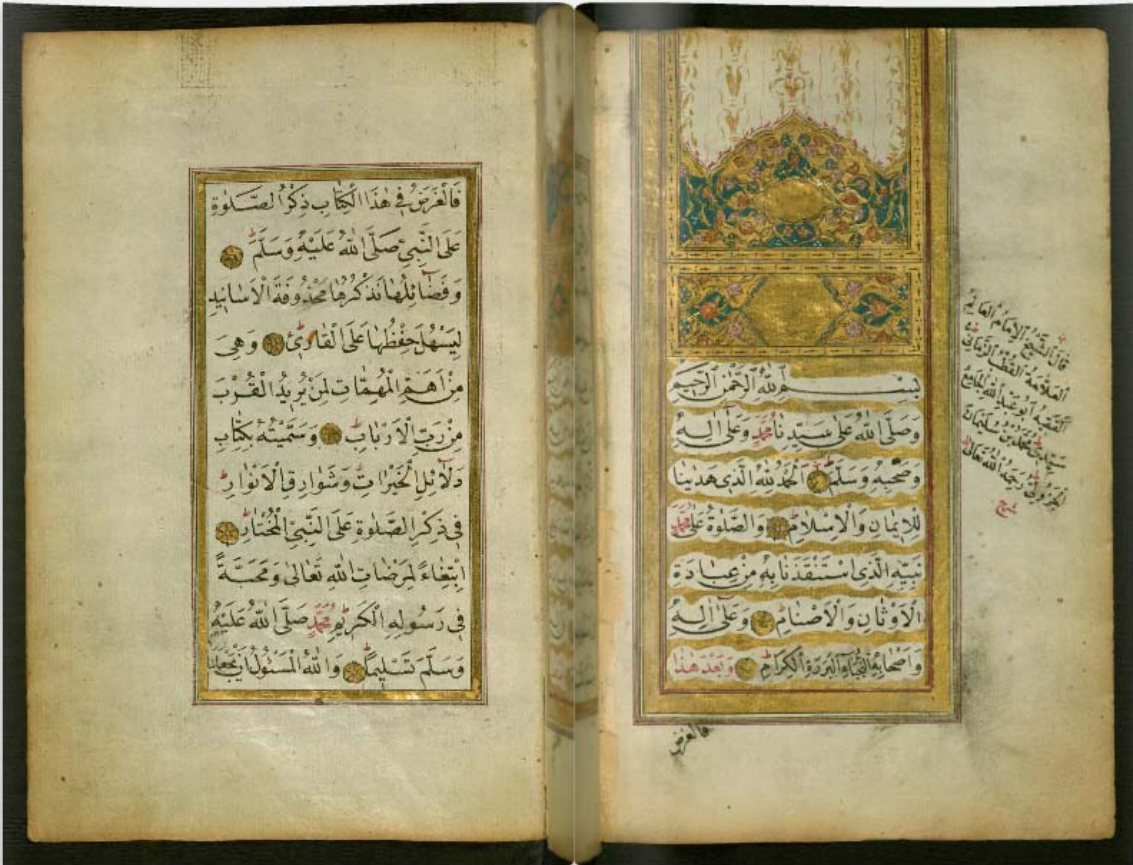 بِسْمِ اللّٰهِ الرَّحْمٰنِ الرَّحِيمِ
وَصَلَّى اللّٰهُ عَلٰى سَيِّدِنَا مُحَمَّدٍ وَعَلٰى اٰلِهِ
وَصَحْبِهِ وَسَلَّمَ اَلْحَمْدُ لِلّٰهِ الَّذِى هَدٰينَا
لِلْاِيمَانِ وَالْاِسْلَامِ وَالصَّلٰوةُ عَلٰى مُحَمَّدٍ
نَبِيِّهِ الَّذِى اسْتَنْقَذَنَا بِهِ مِنْ عِبَادَةِ
الْاَوْثَانِ وَالْاَصْنَامِ وَعَلٰى اٰلِهِ
وَاَصْحَابِهِ النُّجَبَاءِ الْبَرَرَةِ الْكِرَامِ وَبَعْدَ هٰذَا
فالغرض
قَالَ الشَّيْخُ الْاِمَامُ الْعَالِمُ
الْعَلَّامَةُ الْقُطْبُ الرَّبَّانِىُّ
الْفَقِيهُ اَبُو عَبْدِ اللّٰهِ الْجَامِعُ
سَيِّدِى مُحَمَّدُ بْنُ سُلَيْمَانَ
الْجَزُولِىُّ رَحِمَهُ اللّٰهُ تَعَالٰى
فَالْغَرَضُ فِى هٰذَا الْكِتَابِ ذِكْرُ الصَّلٰوةِ
عَلَى النَّبِىِّ صَلَّى اللّٰهُ عَلَيْهِ وَسَلَّمَ
وَفَضَائِلُهَا نَذْكُرُهَا مَحْذُوفَةَ الْاَسَانِيدِ
لِيَسْهُلَ حِفْظُهَا عَلَى الْقَارِئِ وَهِىَ
مِنْ اَهَمِّ الْمُهِمَّاتِ لِمَنْ يُرِيدُ الْقُرْبَ
مِنْ رَبِّ الْاَرْبَابِ وَسَمَّيْتُهُ بِكِتَابِ
دَلَائِلِ الْخَيْرَاتِ وَشَوَارِقِ الْاَنْوَارِ
فِى ذِكْرِ الصَّلٰوةِ عَلَى النَّبِىِّ الْمُخْتَارِ
اِبْتِغَاءً لِمَرْضَاتِ اللّٰهِ تَعَالٰى وَمَحَبَّةً
فِى رَسُولِهِ الْكَرِيمِ مُحَمَّدٍ صَلَّى اللّٰهُ عَلَيْهِ
وَسَلَّمَ تَسْلِيمًا وَاللّٰهُ الْمَسْئُولُ اَنْ يَجْعَلَنَا